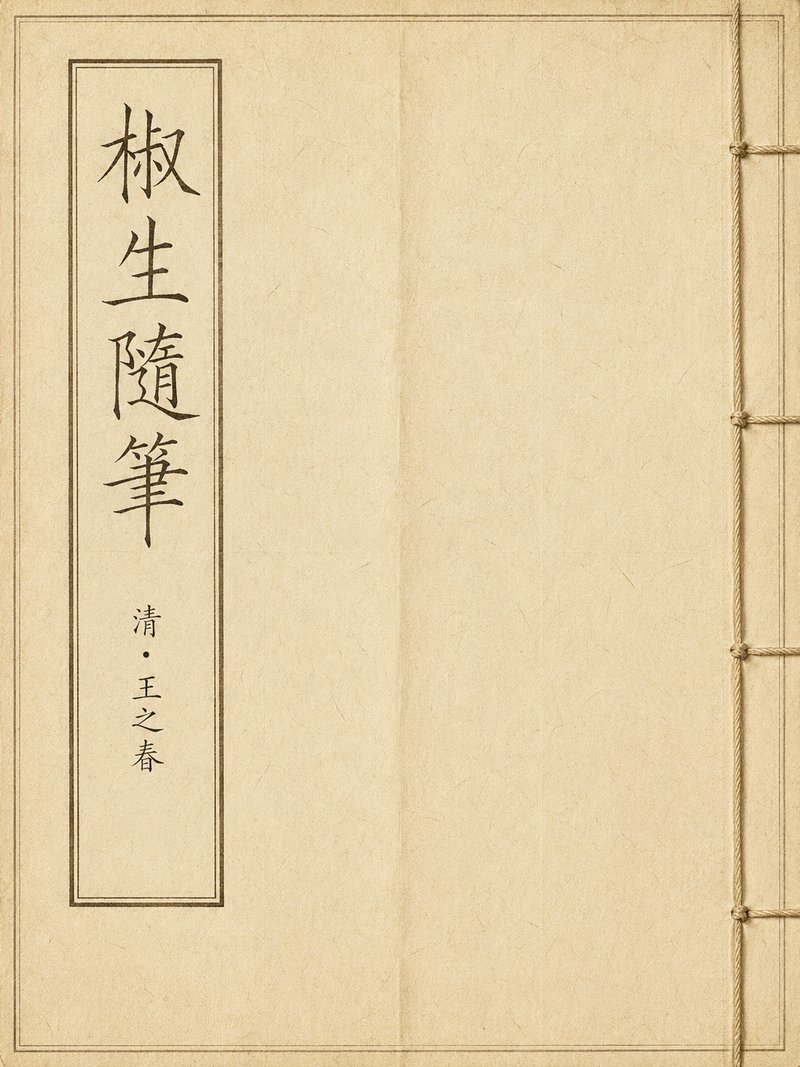 椒生隨筆
清·王之春